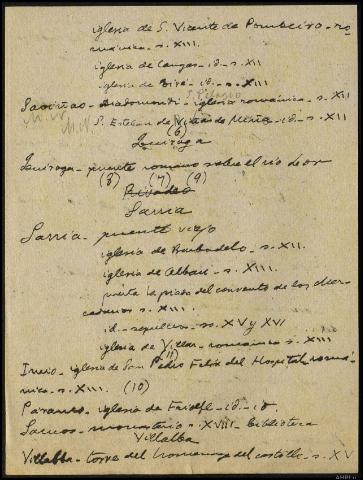 iglesia de S. Vicente de Pombeiro - ro-
mánica - s. XIII.
iglesia de Cangas - id - s. XII
iglesia de - id. - s. XIII
S. Pelagio
Diadmondi - iglesia románica - s. XII
S. Esteban de Ribas de Miño - id - s. XII
(6)
Quiroga
Quiroga - puente romano sobre el rio de or
(8) (7) (9)
Rivadeo
Sarria
Sarria - puente viejo
iglesia de Barbadelo - s. XII.
iglesia de Alban - s. XIII.
puerta del convento de los Mer-
cedarios s. XIII.
id - sepulcros - ss. XV y XVI
iglesia de Villar - románica s. XIII
(11)
Incio - iglesia de San Pedro Felix del Hospital - romá-
nica - s. XIII. (10)
Paramo - iglesia de - id - id.
Samos - monasterio s. XVIII - biblioteca
Villalba
Villalba - torre del homenaje del castillo - s. XV